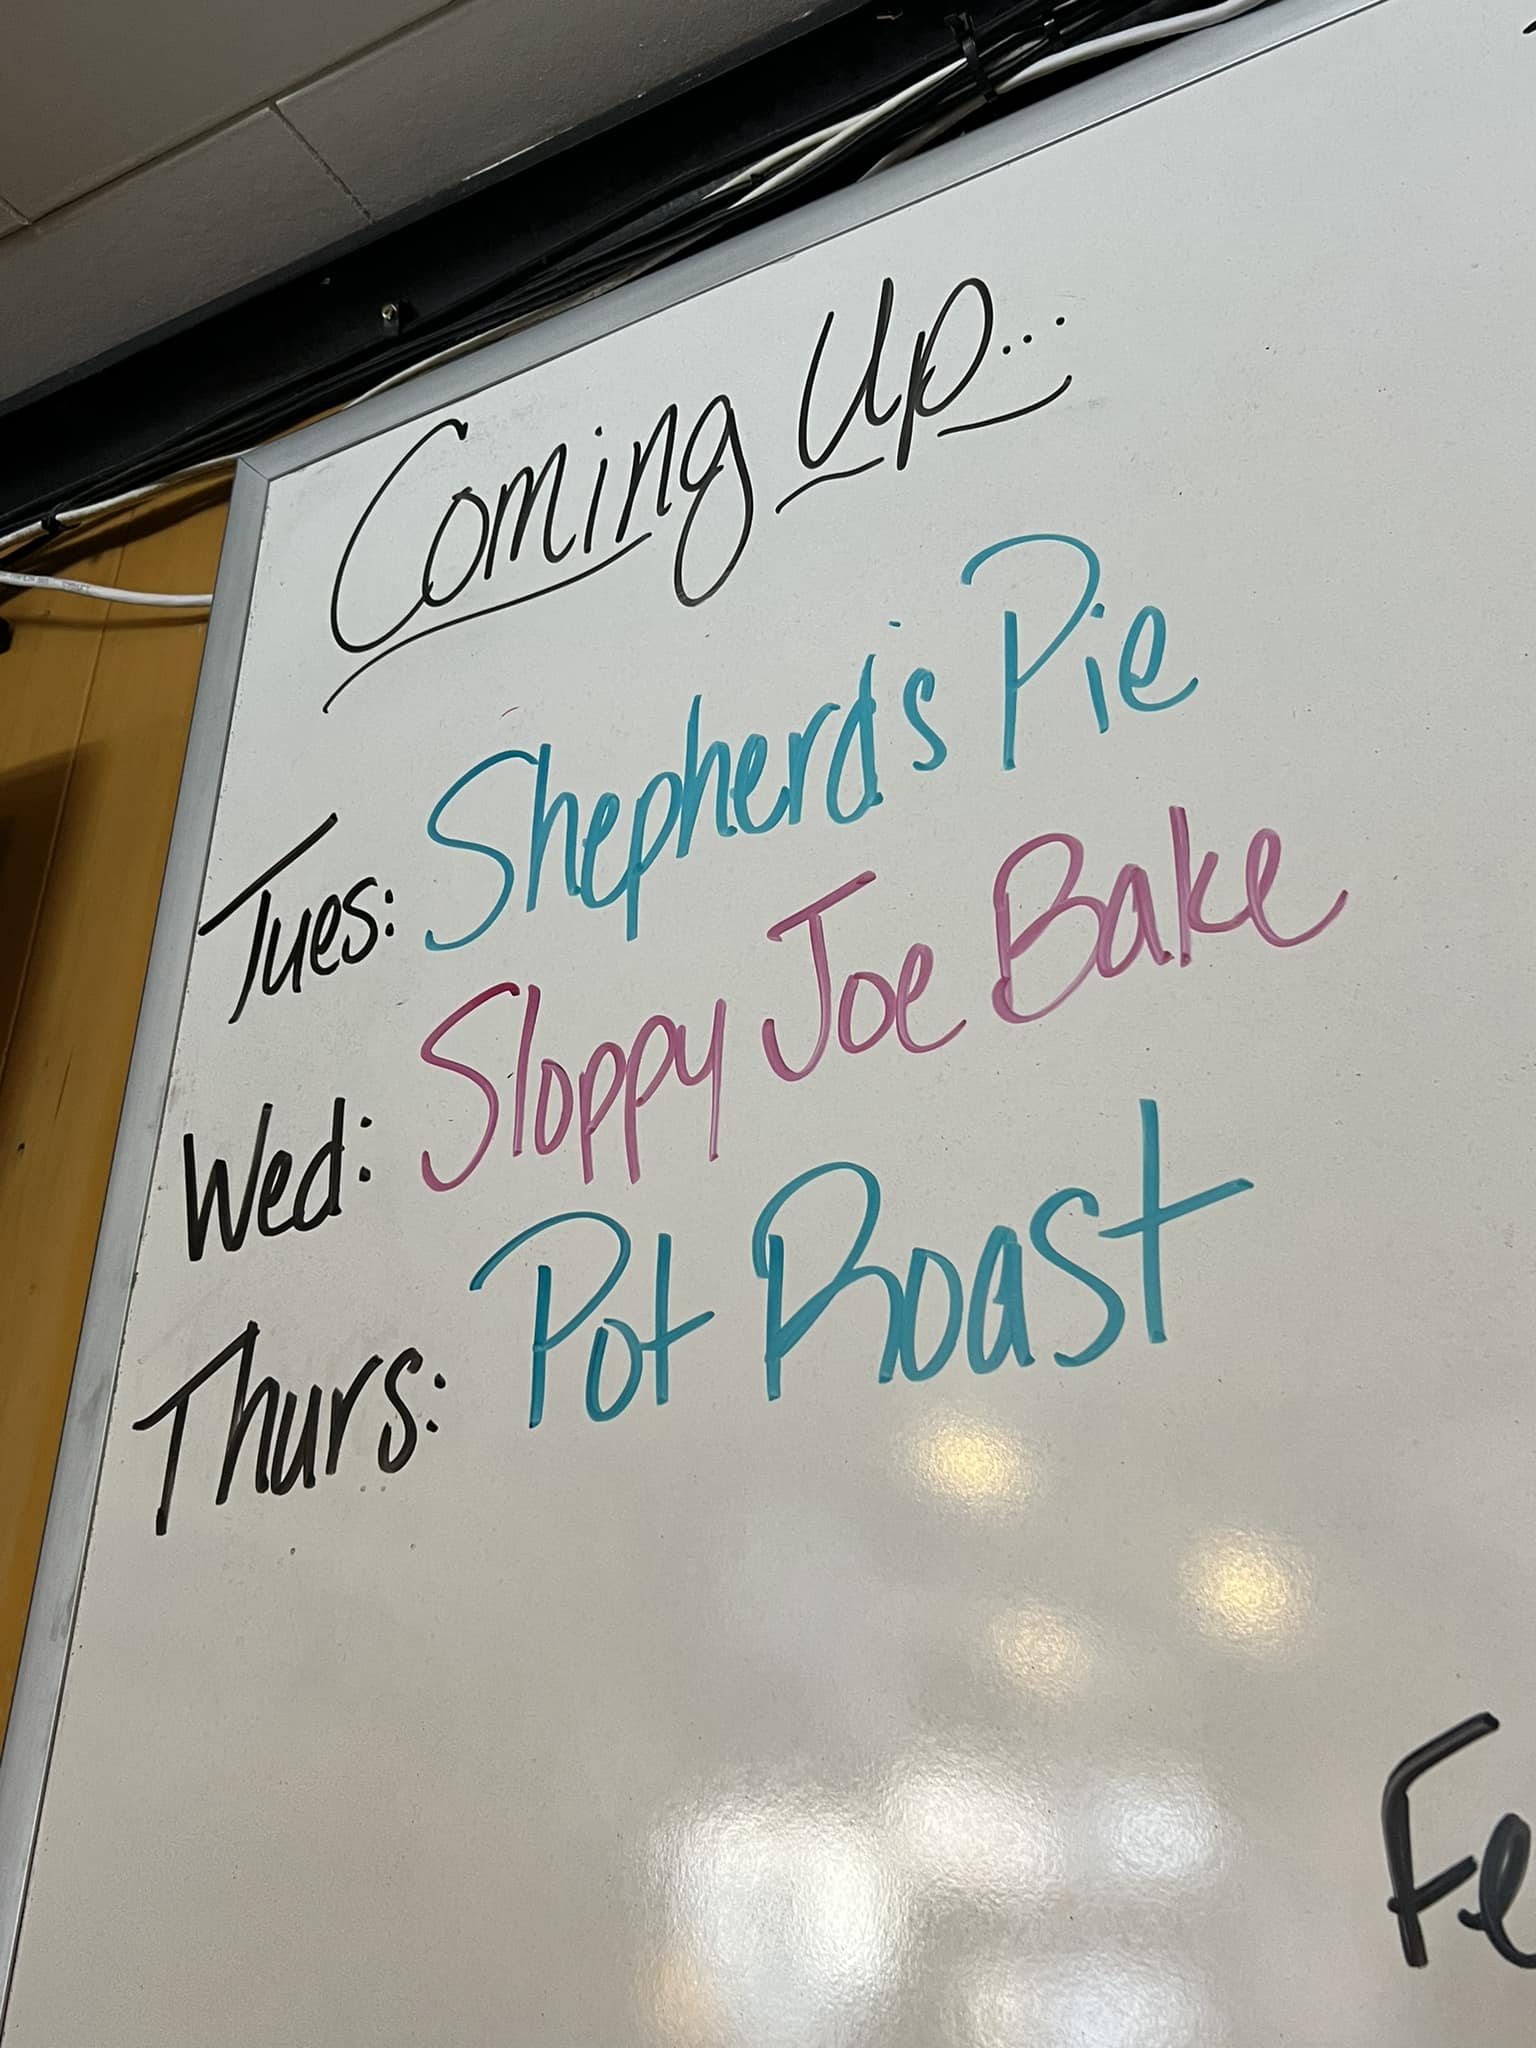 Coming Up...
Tues: Shepherd's Pie
Wed: Sloppy Joe Bake
Thurs: Pot Roast
Fe